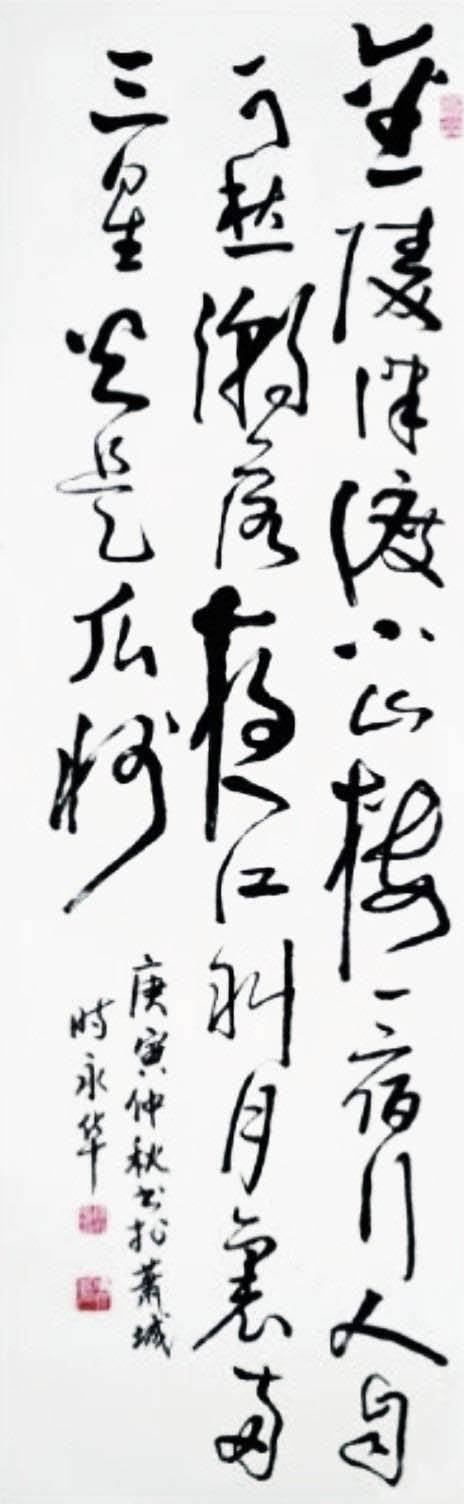 金陵津渡小山楼一宿行人自
可愁潮落夜江斜月裏两
三星火是瓜州
庚寅仲秋书於萧城
時永华